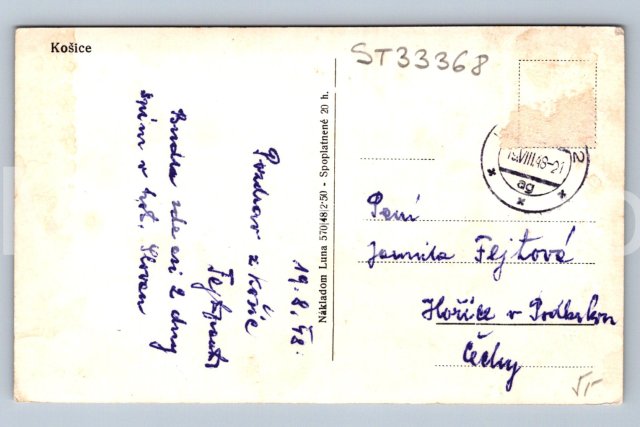 Košice
ST33368
19.8.48.
Pozdrav z Košic
Budu zde asi 2 dny
spím v hot. Slovan
Nákladom Luna 570|48|2·50 - Spoplatnené 20 h.
.VIII.48-21
2
ag
Paní
Jarmila Fejtová
Hořice v Podkrkon
Čechy